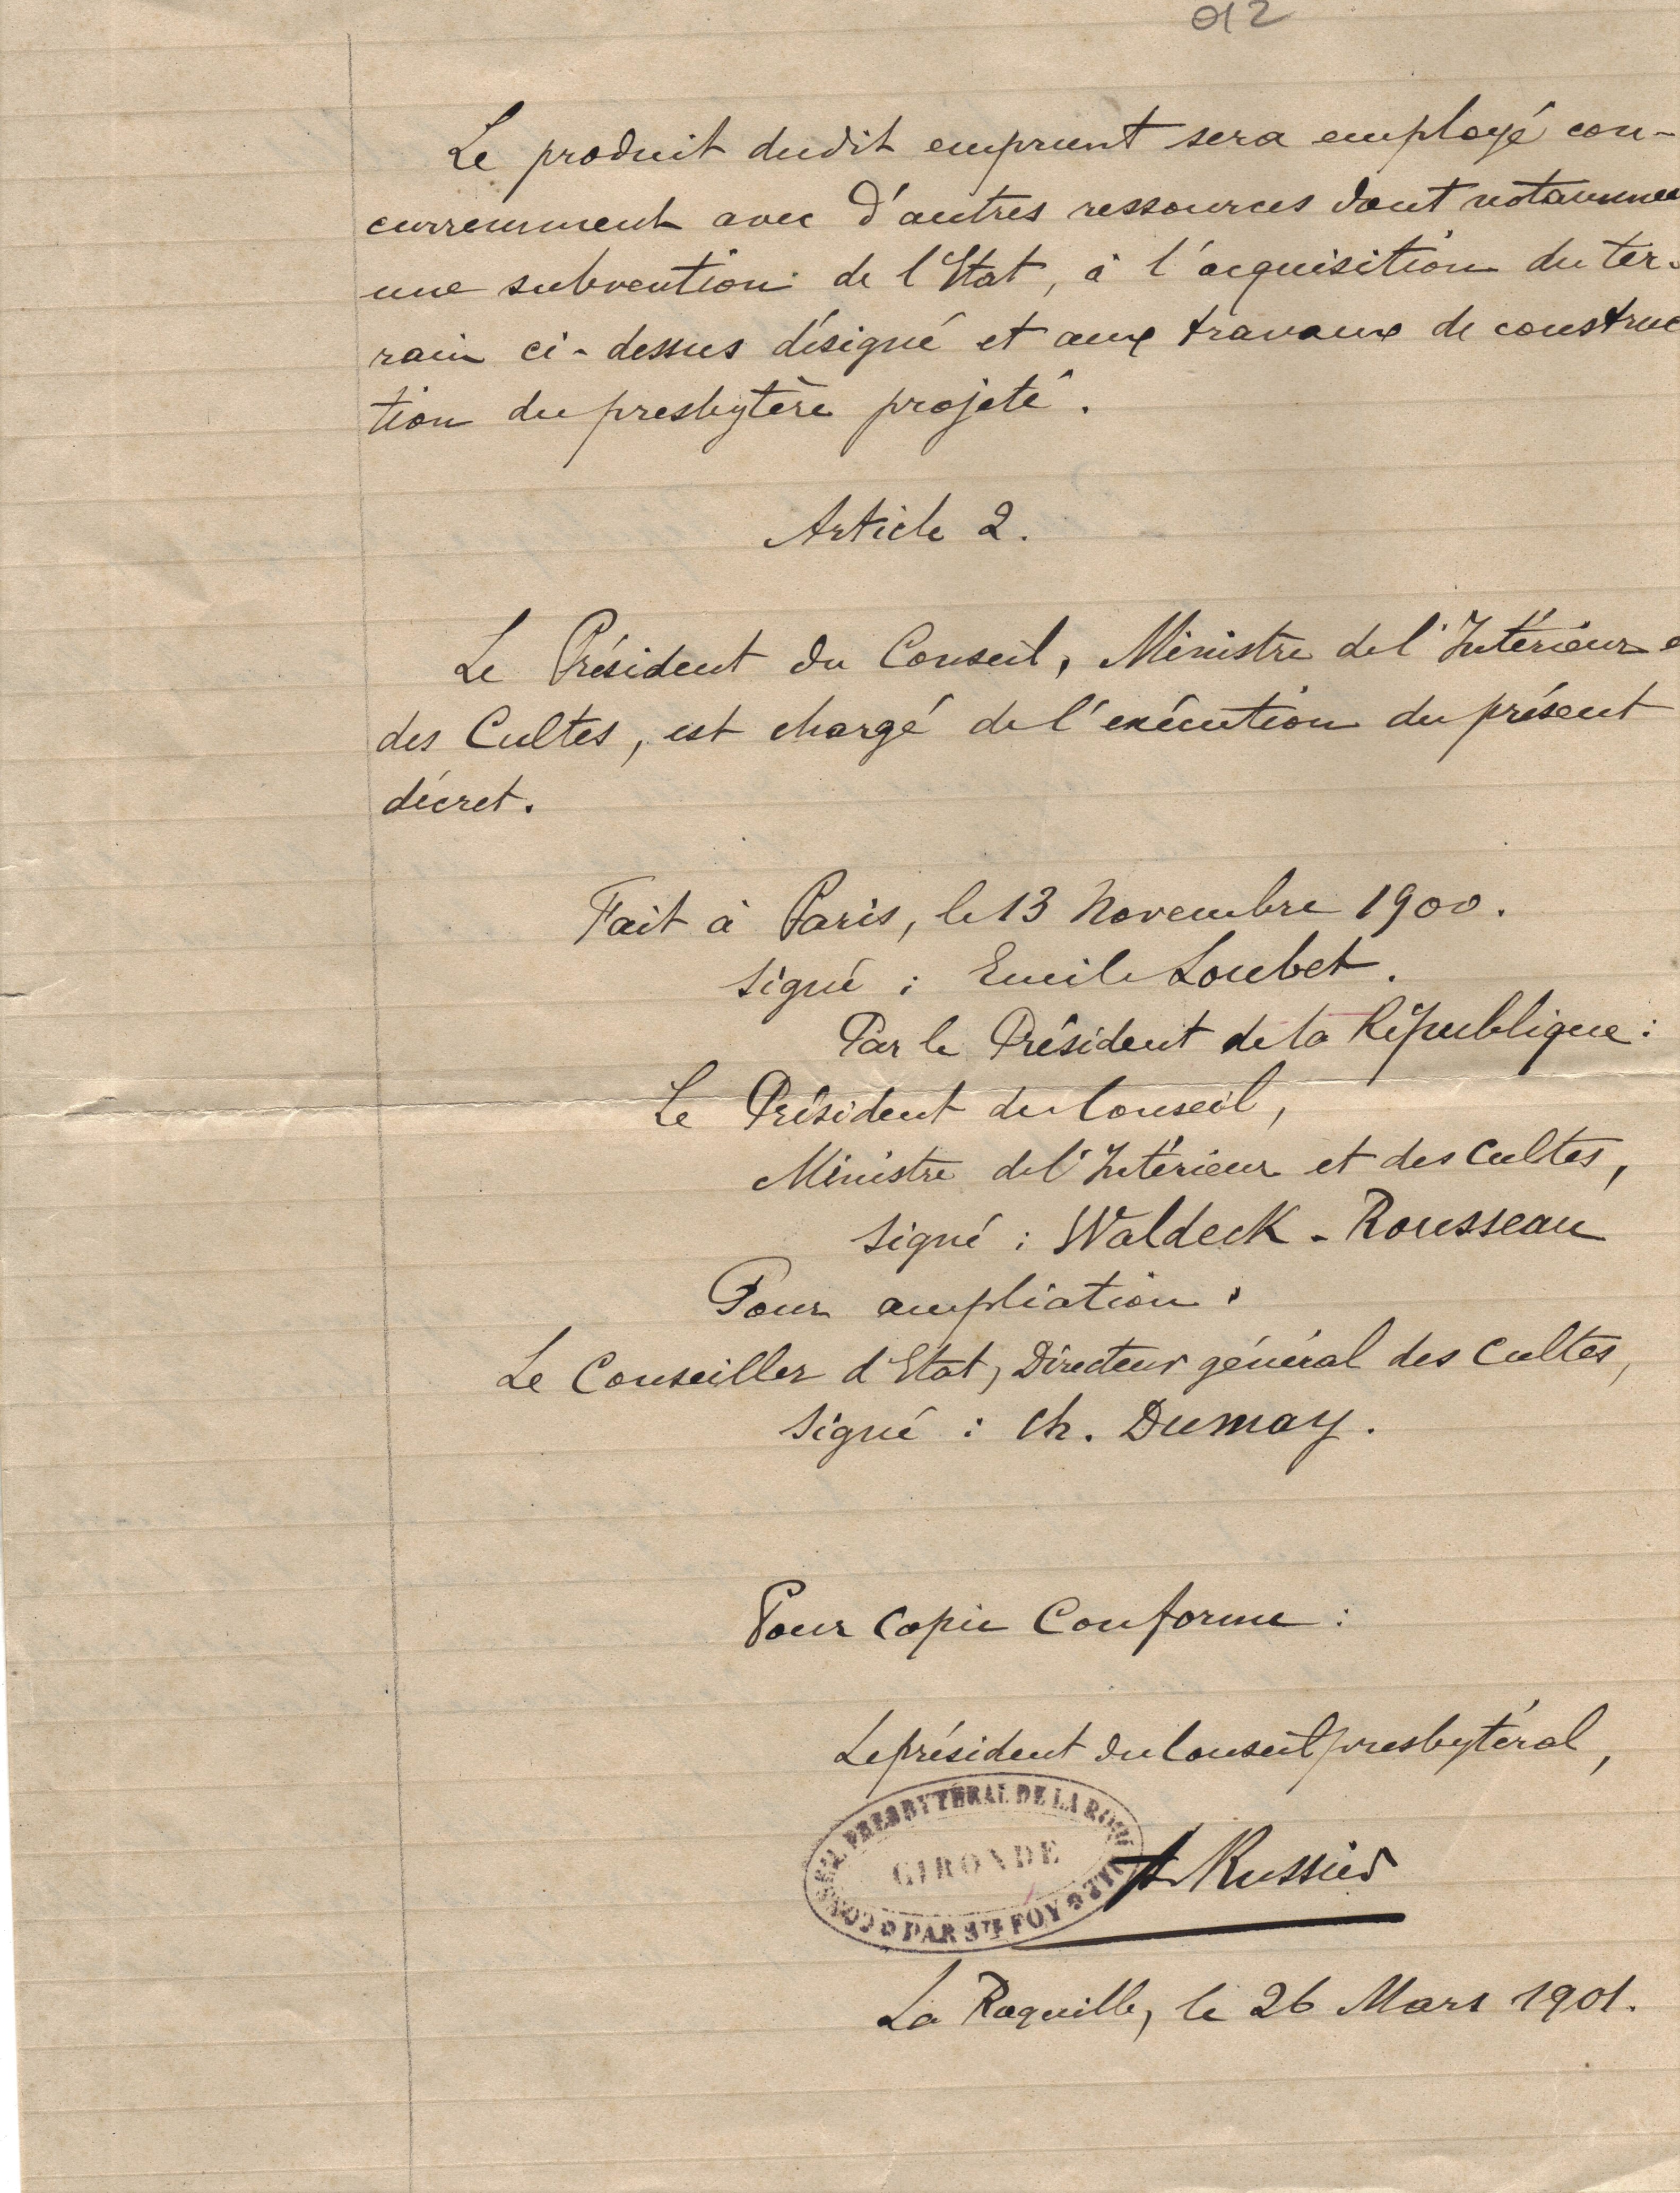 012
Le produit dudit emprunt sera employé con-
curremment avec d'autres ressources dont notamme
une subvention de l'Etat, à l'acquisition du ter-
rain ci-dessus désigné et aux travaux de construc
tion du presbytère projeté.
Article 2.
Le Président du Conseil, Ministre de l'Intérieur e
des Cultes, est chargé de l'exécution du présent
décret.
Fait à Paris, le 13 Novembre 1900.
Signé : Emile Loubet.
Par le Président de la République :
Le Président du Conseil,
Ministre de l'Intérieur et des Cultes,
Signé : Waldeck-Rousseau
Pour ampliation :
Le Conseiller d'Etat, Directeur général des Cultes,
Signé : Ch. Dumay.
Pour Copie Conforme :
Le président du Conseil presbytéral,
CONSEIL PRESBYTÉRAL DE LA ROQUILLE
GIRONDE
PAR STE FOY
Russier
La Roquille, le 26 Mars 1901.